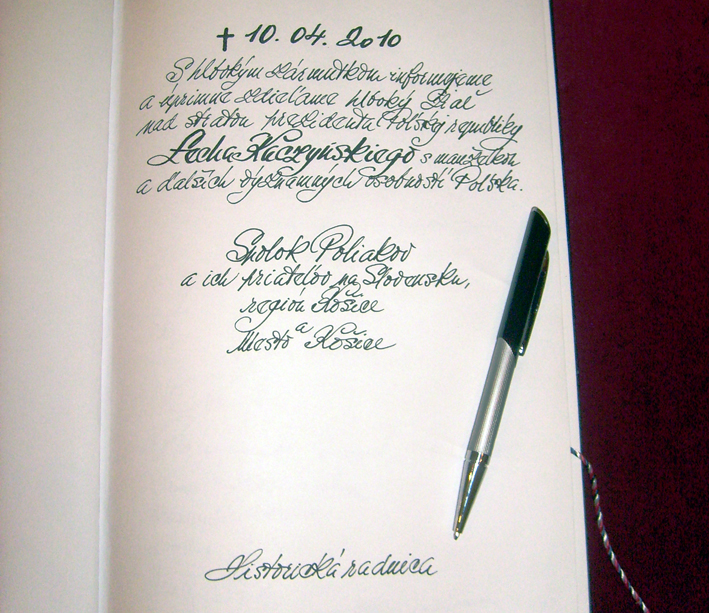 ✝ 10. 04. 2010
S hlbokým zármutkom informujeme
a úprimne zdieľame hlboký žiaľ
nad stratou prezidenta Poľskej republiky
Lecha Kaczyńskiego s manželkou
a ďalších významných osobností Poľska.
Spolok Poliakov
a ich priateľov na Slovensku,
región Košice
a
Mesto Košice
Historická radnica